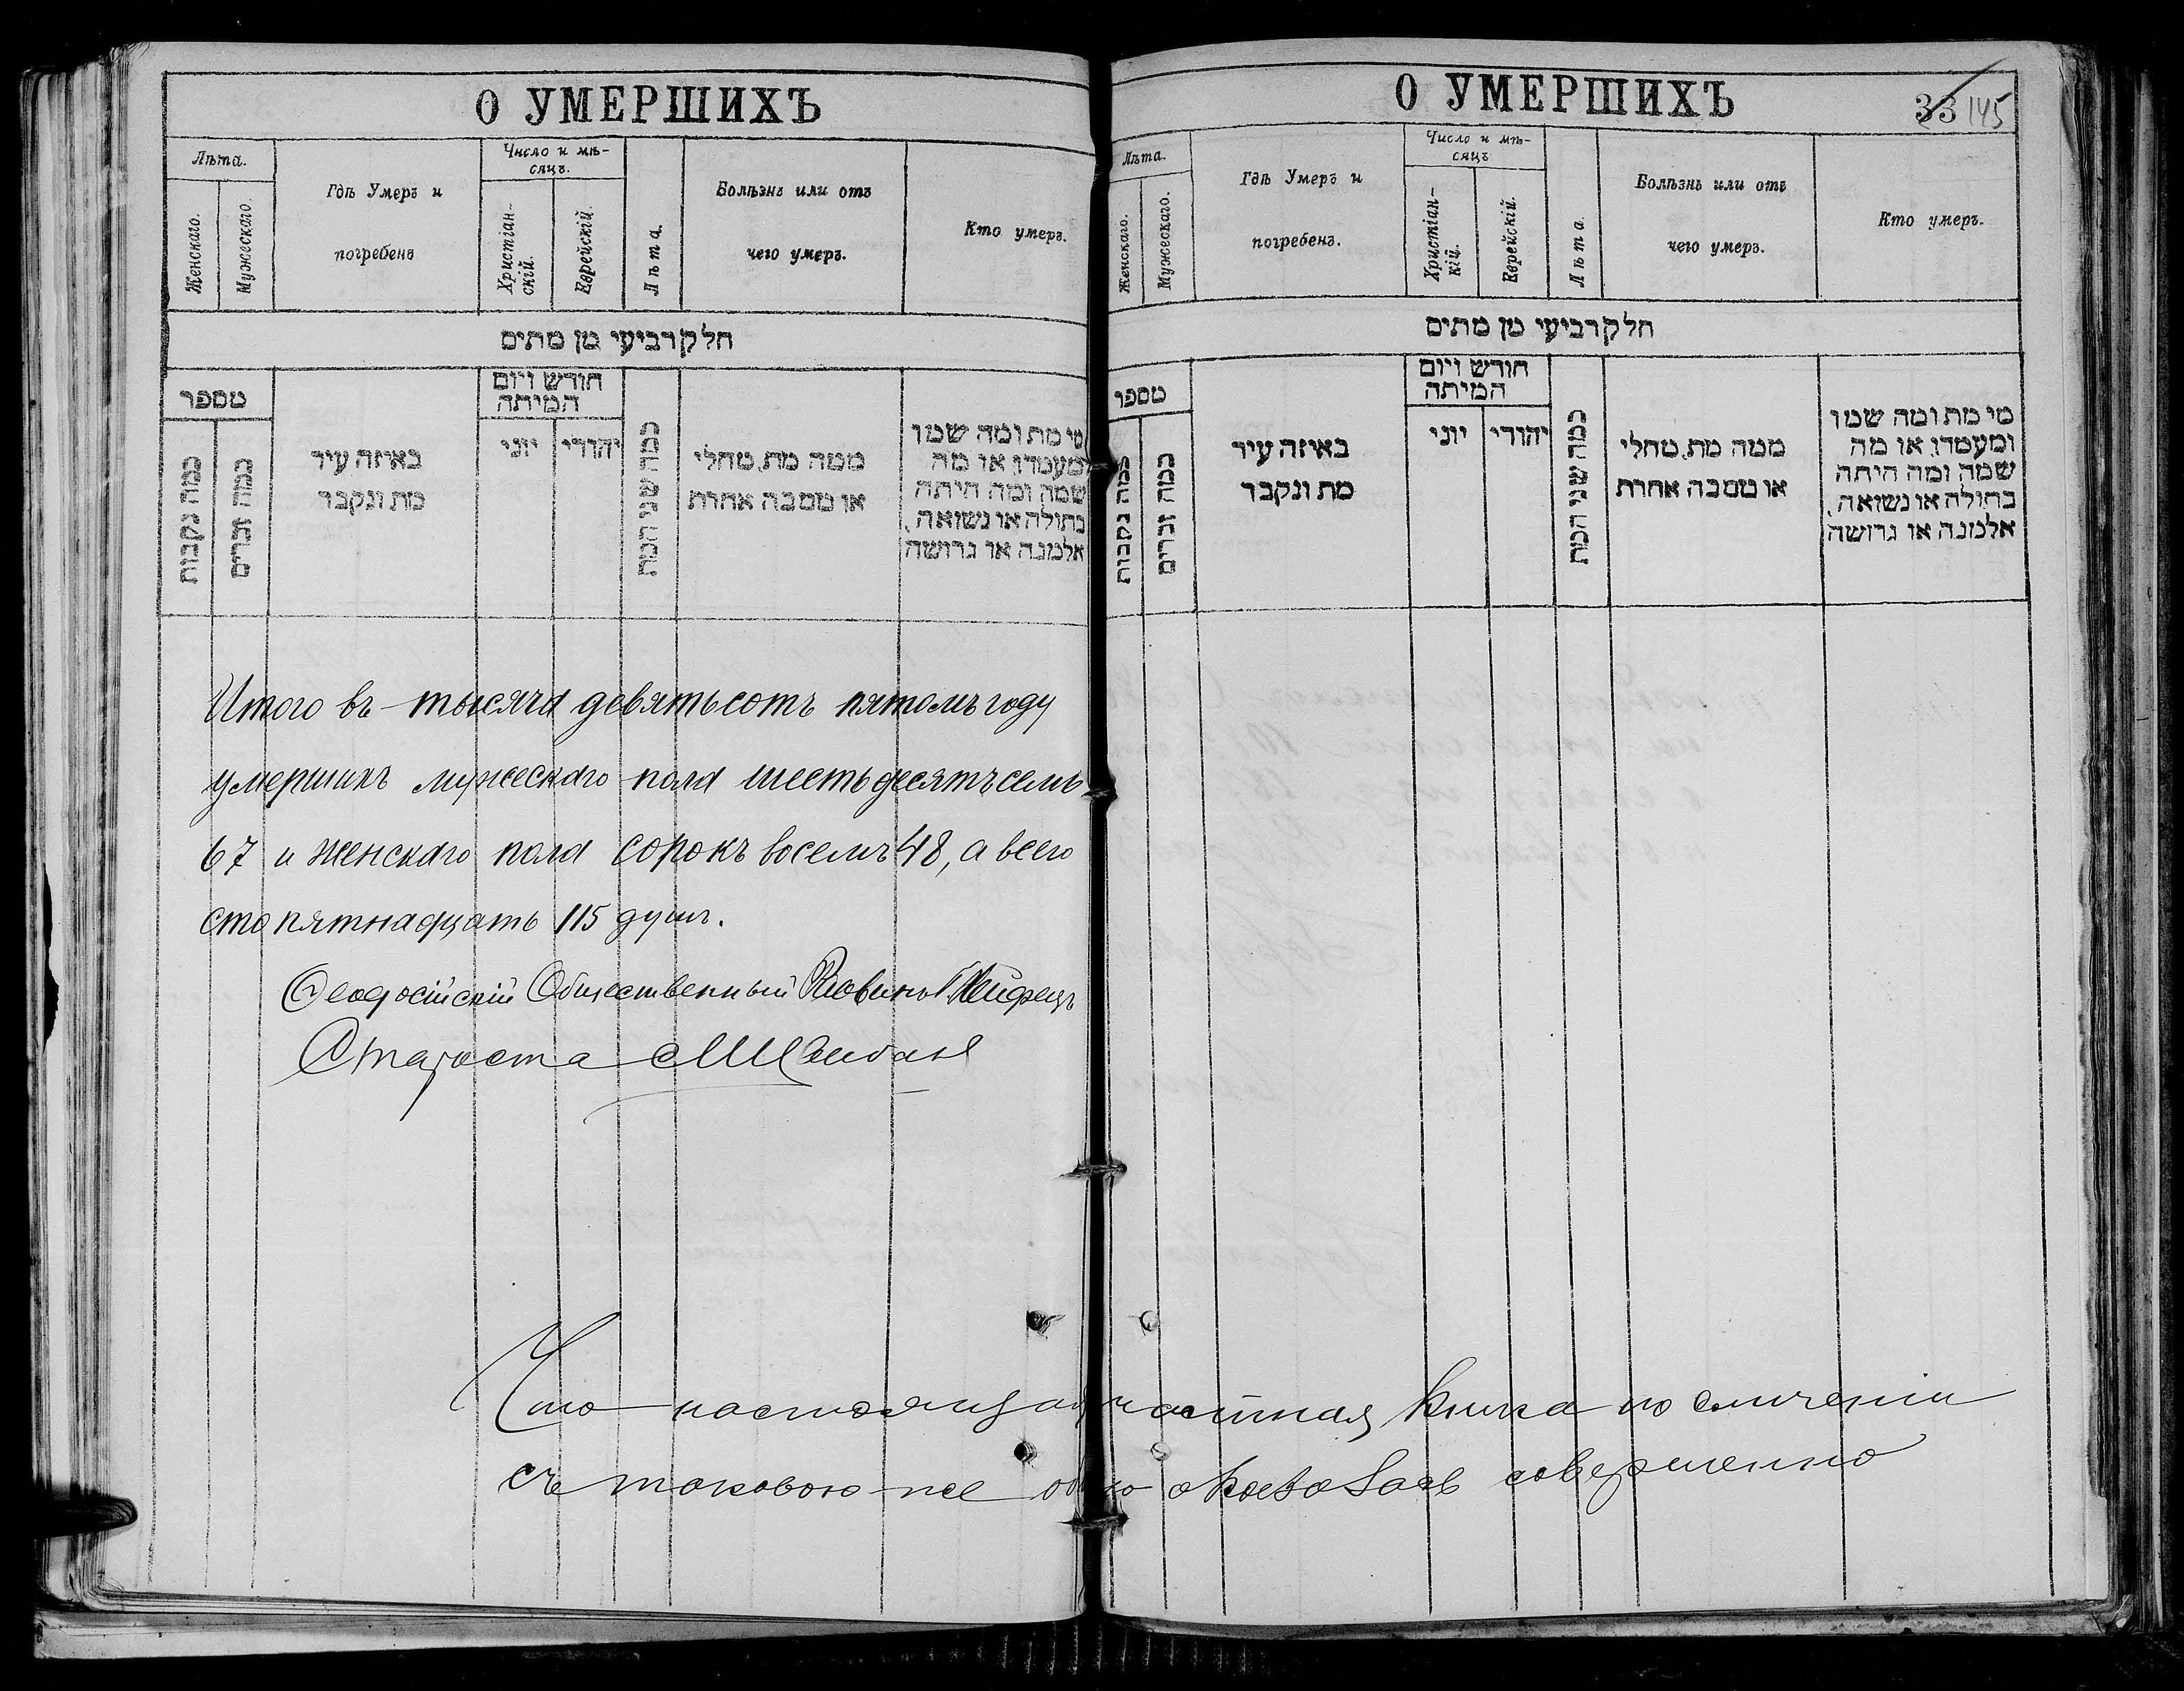 О УМЕРШИХЪ
Лѣта.
Женскаго.
Мужескаго.
Гдѣ Умеръ и
погребенъ
Число и мѣ-
сяцъ.
Христіан-
скій.
Еврейскій.
Лѣта.
Болѣзнь или отъ
чего умеръ.
Кто умеръ.
חלק רביעי מן מתים
מספר
כמה נקבות
כמה זכרים
באיזה עיר
מת ונקבר
חודש ויום
המיתה
יוני
יהודי
כמה שני המת
ממה מת, מחלי
או מסבה אחרת
מי מת ומה שמו
ומעמדו, או מה
שמה ומה היתה
בתולה או נשואה,
אלמנה או גרושה
Итого въ тысяча девятьсотъ пятомъ году
умершихъ мужескаго пола шестьдесятъ семь
67 и женскаго пола сорокъ восемъ 48, а всего
сто пятнадцать 115 душъ.
Ѳеодосійскій Общественный Раввинъ Г. Хейфецъ
Староста
О УМЕРШИХЪ
33 145
Лѣта.
Женскаго.
Мужескаго.
Гдѣ Умеръ и
погребенъ.
Число и мѣ-
сяцъ
Христіан-
кій.
Еврейскій.
Лѣта.
Болѣзнь или отъ
чего умеръ.
Кто умеръ.
חלק רביעי מן מתים
מספר
כמה נקבות
כמה זכרים
באיזה עיר
מת ונקבר
חודש ויום
המיתה
יוני
יהודי
כמה שני המת
ממה מת, מחלי
או מסבה אחרת
מי מת ומה שמו
ומעמדו, או מה
שמה ומה היתה
בתולה או נשואה,
אלמנה או גרושה
Что настоящая книга по сличеніи
съ таковою-же оказалась совершенно